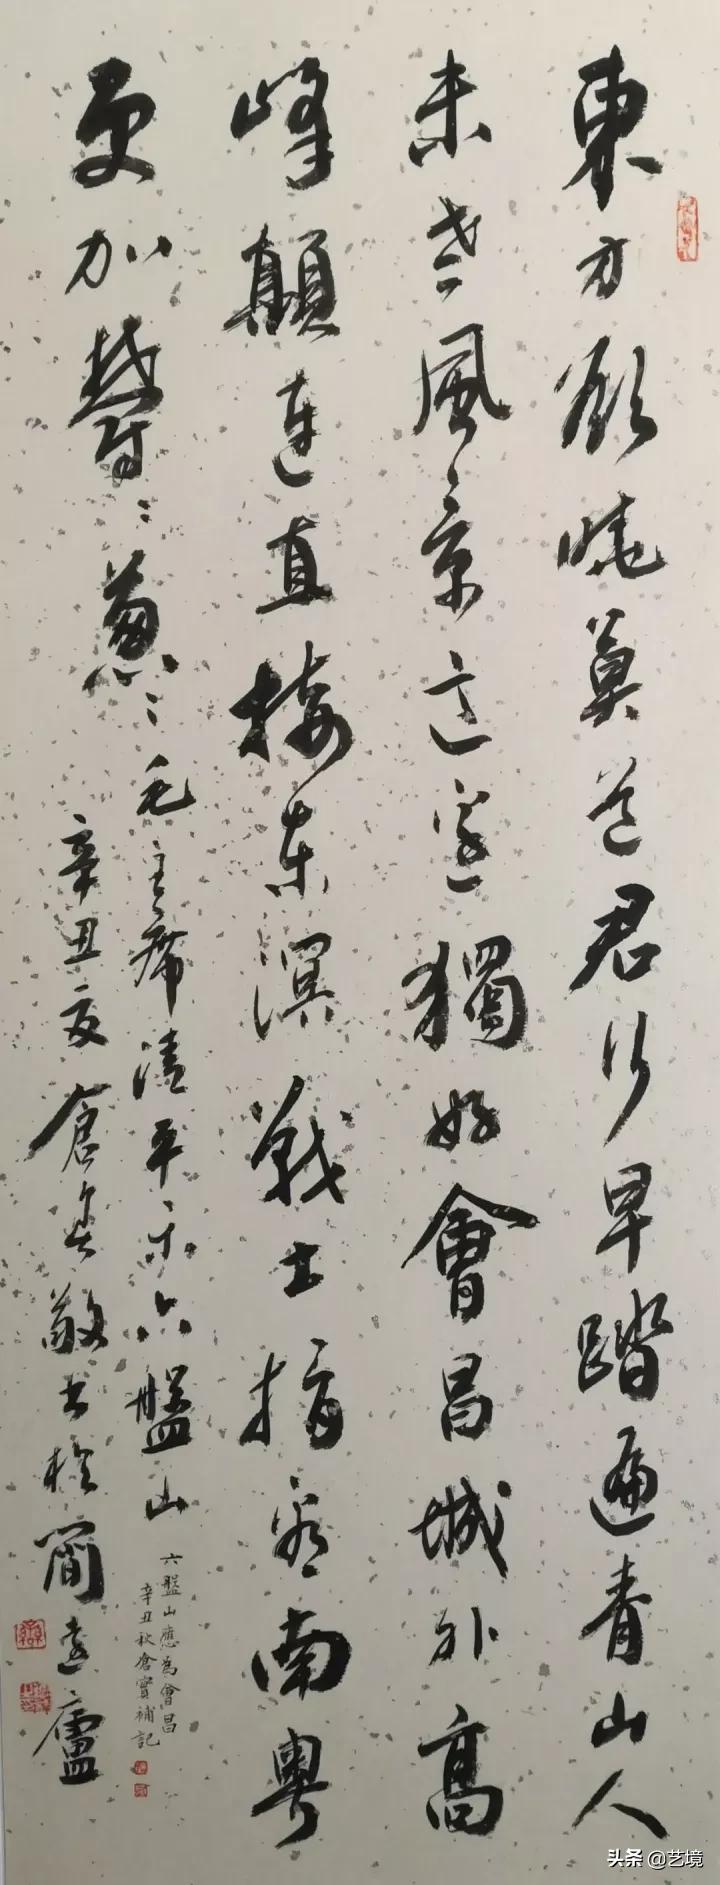 東方欲曉莫道君行早踏遍青山人
未老風景這邊獨好會昌城外高
峰顛連直接東溟戰士指看南粵
更加鬱〻蔥〻毛主席清平樂六盤山
辛丑夏倉實敬書於簡遠廬
六盤山應為會昌
辛丑秋倉實補記
头条 @艺境